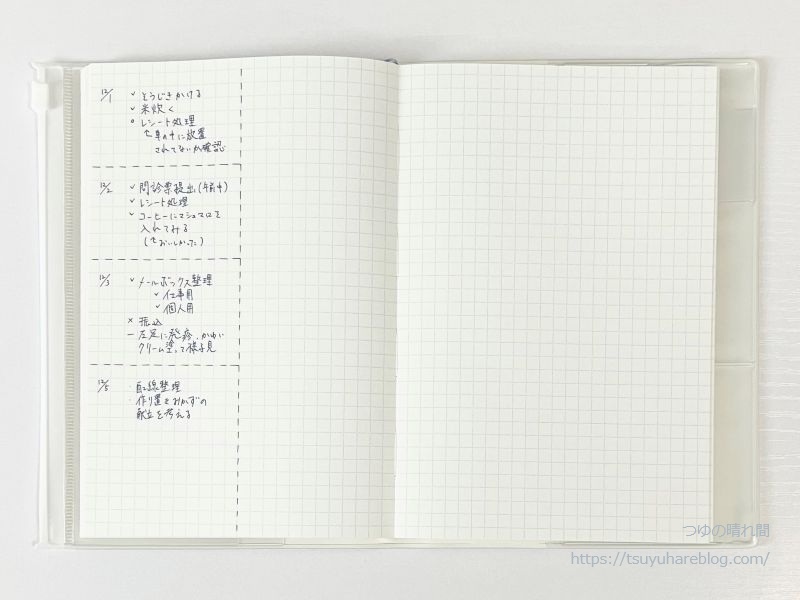 12/1
✓ そうじきかける
✓ 米炊く
○ レシート処理
↑車の中に放置
されてないか確認
12/2
✓ 問診票提出(午前中)
✓ レシート処理
✓ コーヒーにマシュマロを
入れてみる
(↑おいしかった)
12/3
✓ メールボックス整理
✓ 仕事用
✓ 個人用
× 振込
− 左足に発疹、かゆい
クリーム塗って様子見
12/5
・配線整理
・作りおきおかずの
献立を考える
つゆの晴れ間
https://tsuyuhareblog.com/